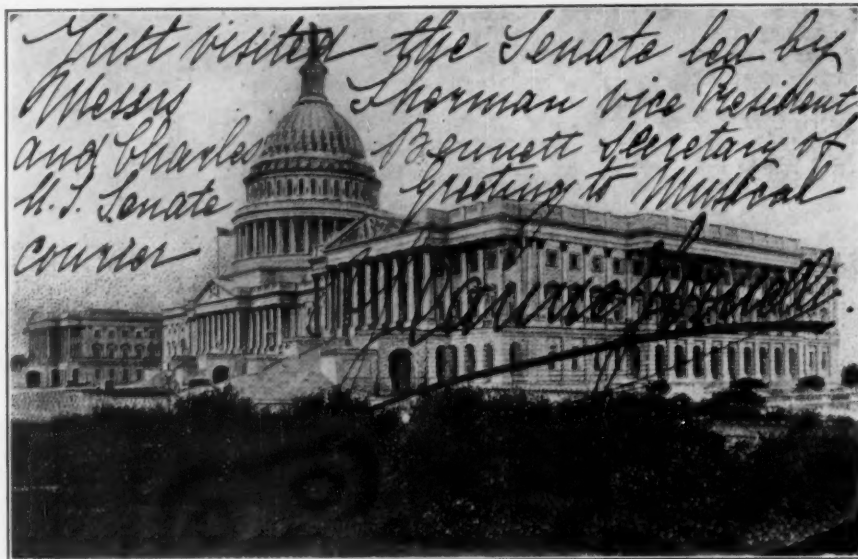 Just visited the Senate led by
Messrs Sherman vice President
and Charles Bennett secretary of
U.S. Senate Greeting to Musical
courier